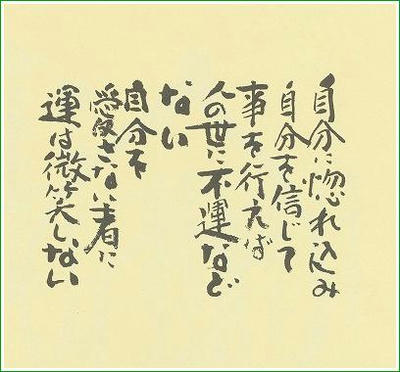 自分に惚れ込み
自分を信じて
事を行えば
人の世に不運など
ない
自分を
愛さない者に
運は微笑しない